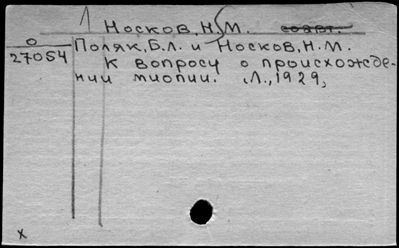 Носков, Н.М. соавт.
О
27054 Поляк, Б.Л. и Носков, Н.М.
К вопросу о происхожде-
нии миопии. Л., 1929,
х